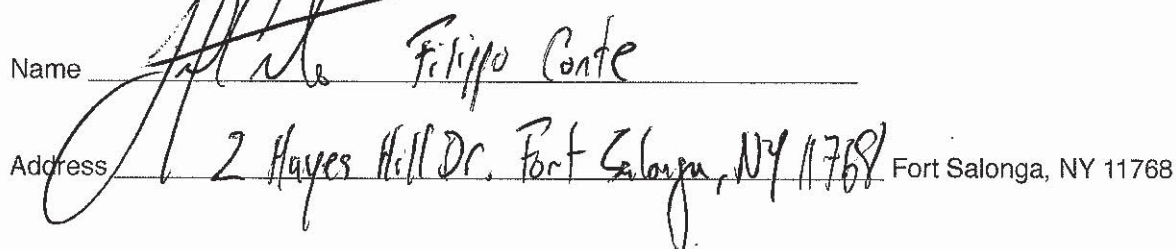 Name Filippo Conte
Address 2 Hayes Hill Dr. Fort Salonga, NY 11768 Fort Salonga, NY 11768